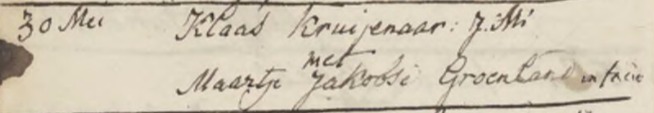 30 Mei Klaas Kruijenaar: J: M:
met
Maartje Jakobse Groenland